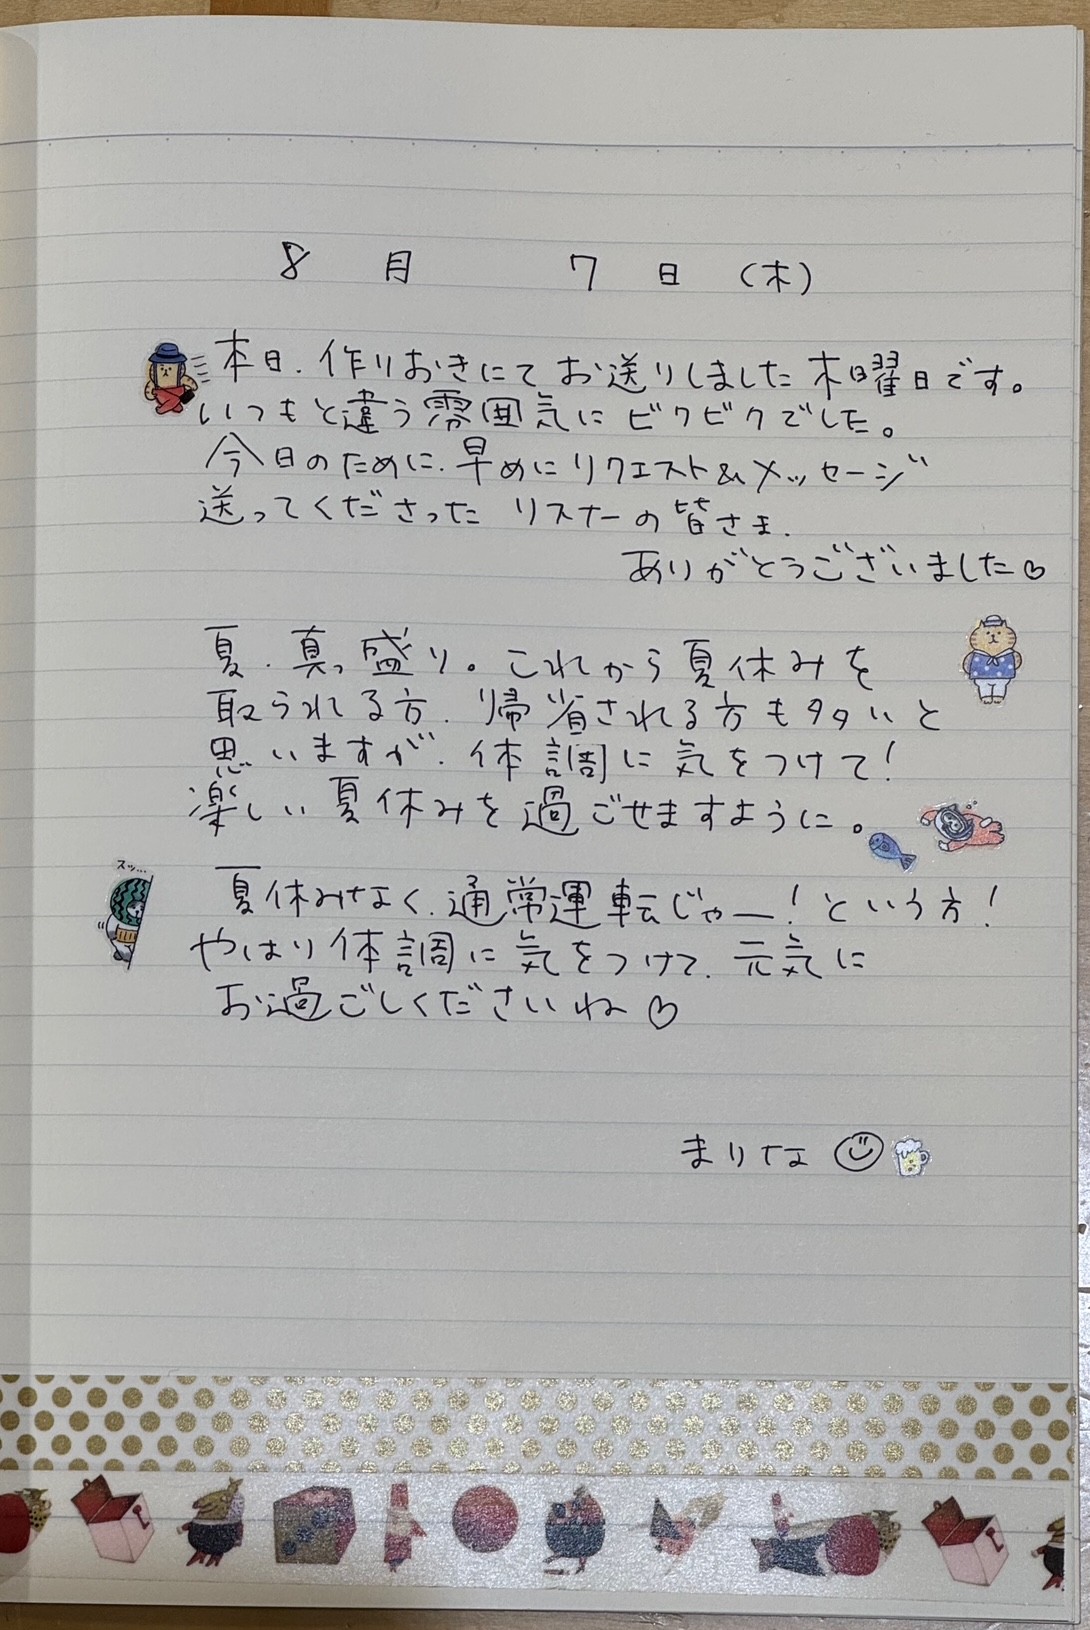 8月 7日(木)
本日、作りおきにてお送りしました木曜日です。
いつもと違う雰囲気にビクビクでした。
今日のために、早めにリクエスト&メッセージ
送ってくださった リスナーの皆さま、
ありがとうございました♡
夏、真っ盛り。これから夏休みを
取られる方、帰省される方も多いと
思いますが、体調に気をつけて!
楽しい夏休みを過ごせますように。
スッ…
夏休みなく、通常運転じゃー!という方!
やはり体調に気をつけて、元気に
お過ごしくださいね♡
まりな